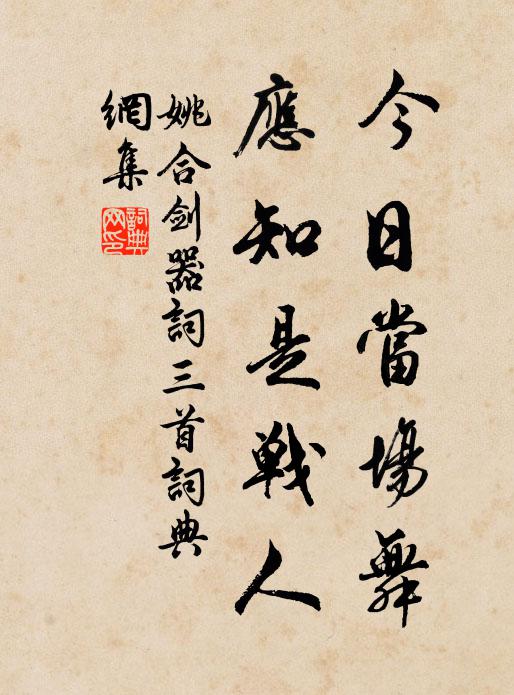 今日當場舞
應知是戰人
姚合劍器詞三首詞典
網集
詞典
网印